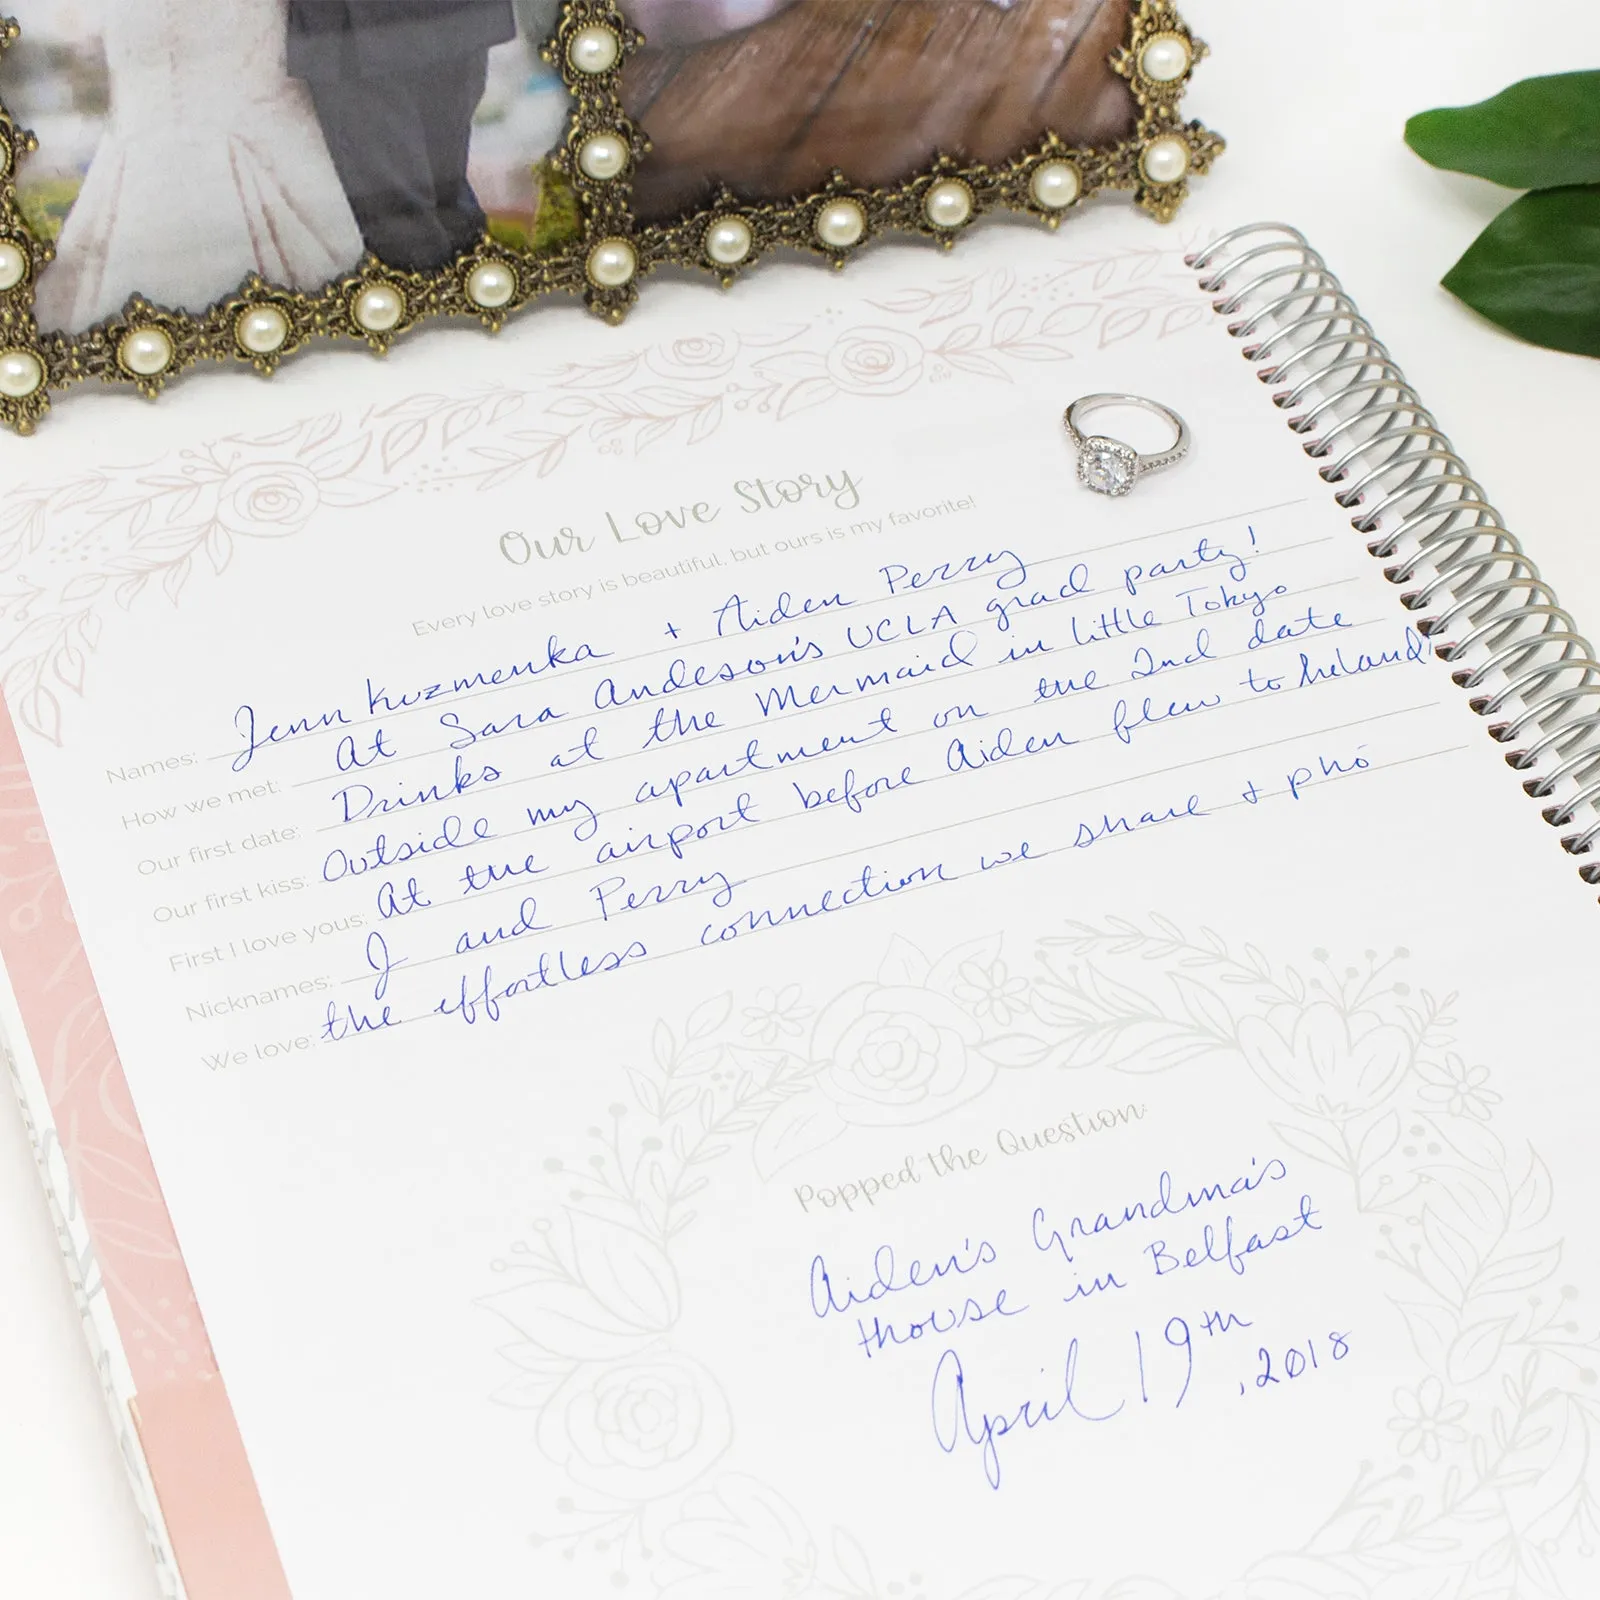 Our Love Story
Every love story is beautiful, but ours is my favorite!
Names: Jenn Kuzmenka + Aiden Perry
How we met: At Sara Andeson's UCLA grad party!
Our first date: Drinks at the Mermaid in little Tokyo
Our first kiss: Outside my apartment on the 2nd date
First I love yous: At the airport before Aiden flew to Ireland!
Nicknames: J and Perry
We love: the effortless connection we share + phò
Popped the Question:
Aiden's Grandma's
House in Belfast
April 19th, 2018